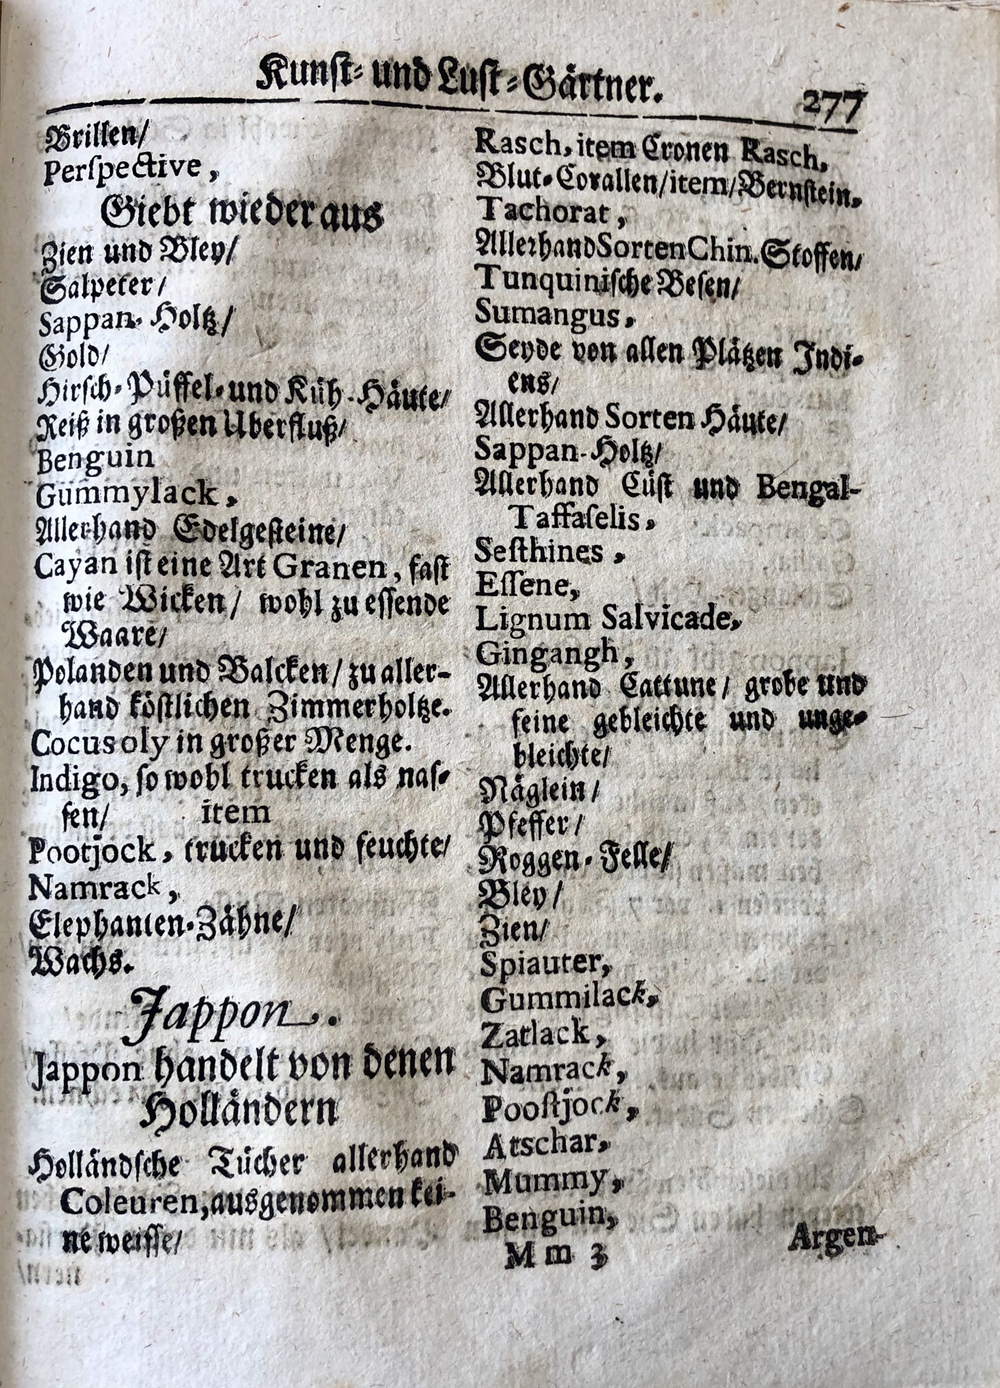 Kunst- und Lust-Gärtner.
277
Brillen/
Perſpective,
Giebt wieder aus
Zien und Bley/
Salpeter/
Sappan-Holtz/
Gold/
Hirſch-Püffel-und Küh-Häute/
Reiß in großen Uberfluß/
Benguin
Gummylack,
Allerhand Edelgeſteine/
Cayan iſt eine Art Granen, faſt
wie Wicken/ wohl zu eſſende
Waare/
Polanden und Balcken/ zu aller-
hand köſtlichen Zimmerholtze.
Cocusoly in großer Menge.
Indigo, ſo wohl trucken als naſ-
ſen/ item
Pootjock, trucken und feuchte/
Namrack,
Elephanten-Zähne/
Wachs.
Jappon.
Jappon handelt von denen
Holländern
Holländſche Tücher allerhand
Coleuren, ausgenommen kei-
ne weiſſe/
Rasch, item Cronen Rasch,
Blut-Corallen/item/Bernſtein,
Tachorat,
Allerhand Sorten Chin. Stoffen/
Tunquiniſche Beſen/
Sumangus,
Seyde von allen Plätzen Indi-
ens/
Allerhand Sorten Häute/
Sappan-Holtz/
Allerhand Cüſt und Bengal-
Taffaſelis,
Seſthines,
Eſſene,
Lignum Salvicade,
Gingangh,
Allerhand Cattune/ grobe und
feine gebleichte und unge-
bleichte/
Näglein/
Pfeffer/
Roggen-Felle/
Bley/
Zien/
Spiauter,
Gummilack,
Zatlack,
Namrack,
Pooſtjock,
Atschar,
Mummy,
Benguin,
M m 3
Argen-